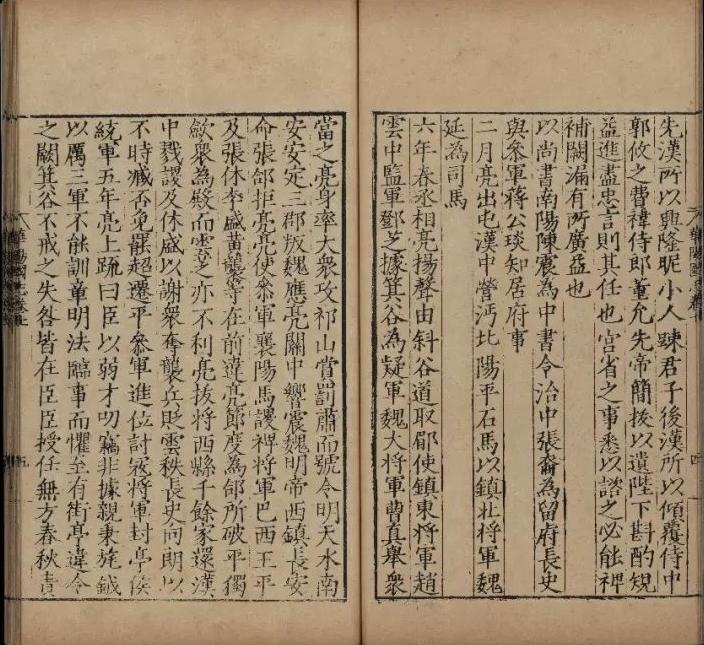 先漢所以興隆昵小人踈君子後漢所以傾覆侍中
郭攸之費禕侍郎董允先帝簡拔以遺陛下斟酌規
益進盡忠言則其任也宮省之事悉以諮之必能裨
補闕漏有所廣益也
以尚書南陽陳震為中書令治中張裔為留府長史
與叅軍蔣公琰知居府事
二月亮出屯漢中營沔北陽平石馬以鎮北將軍魏
延為司馬
六年春丞相亮揚聲由斜谷道取郿使鎮東將軍趙
雲中監軍鄧芝據箕谷為疑軍魏大將軍曹真舉衆
當之亮身率大衆攻祁山賞罰肅而號令明天水南
安安定三郡叛魏應亮關中響震魏明帝西鎮長安
命張郃拒亮亮使叅軍襄陽馬謖裨將軍巴西王平
及張休李盛黃襲等在前違亮節度為郃所破平獨
斂衆為殿而雲芝亦不利亮拔將西縣千餘家還漢
中戮謖及休盛以謝衆奪襲兵貶雲秩長史向朗以
不時臧否免罷超遷平叅軍進位討寇將軍封亭侯
統軍五年亮上疏曰臣以弱才叨竊非據親秉旄鉞
以厲三軍不能訓章明法臨事而懼至有街亭違令
之闕箕谷不戒之失咎皆在臣臣授任無方春秋責